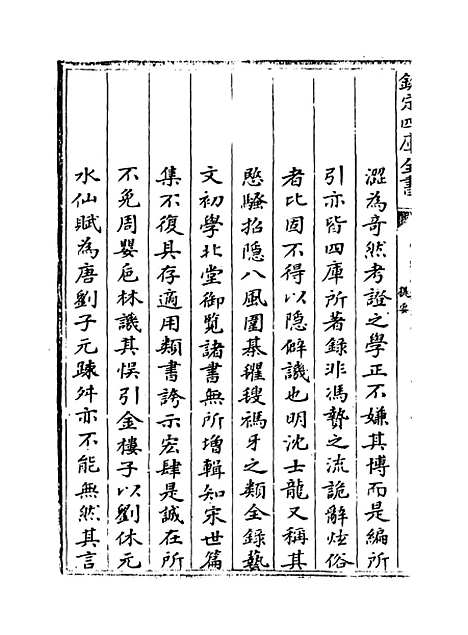 欽定四庫全書
提要
澀為奇然考證之學正不嫌其博而是編所
引亦皆四庫所著錄非馮贄之流詭辭炫俗
者比固不得以隐僻譏也明沈士龍又稱其
愍騷招隐八風圍棊糉䅹禡牙之類全錄藝
文初學北堂御覽諸書無所增輯知宋世篇
集不復具存適用類書誇示宏肆是誠在所
不免周嬰巵林譏其悞引金樓子以劉休元
水仙賦為唐劉子元疎舛亦不能無然其言